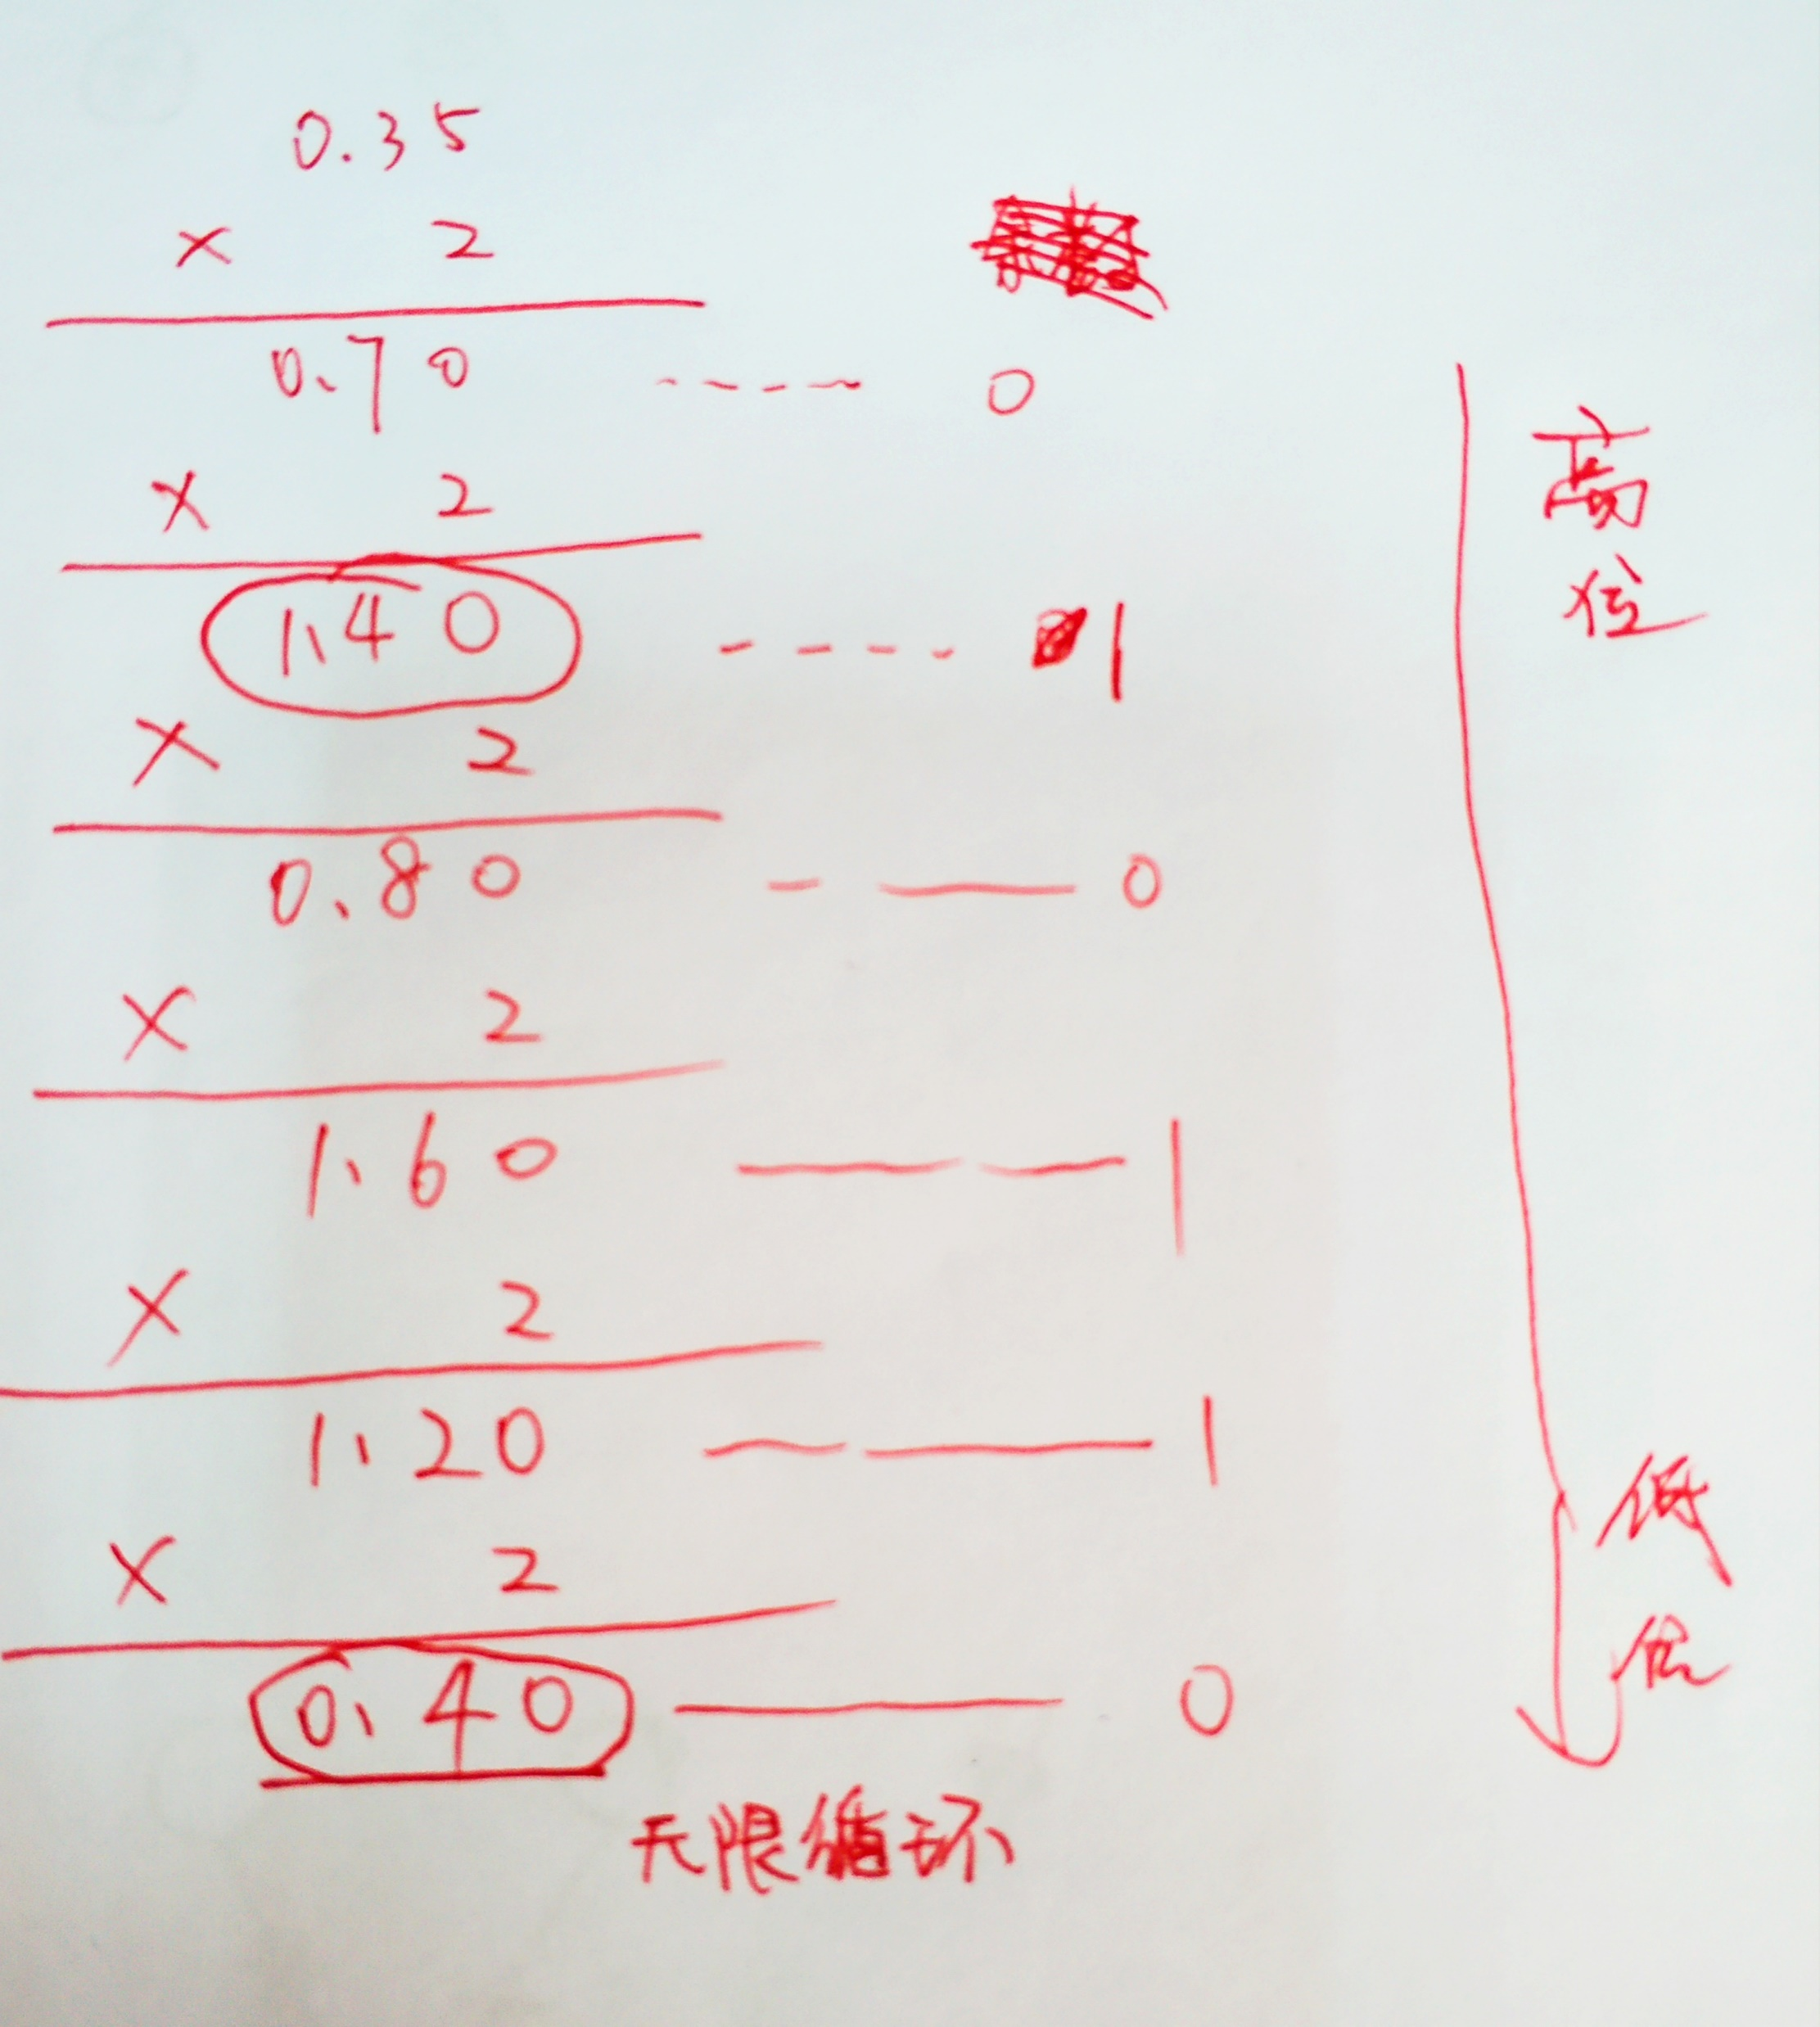 0.35
× 2
0.70 ---- 0
× 2
1.40 ---- 1
× 2
0.80 —— 0
× 2
1.60 —— 1
× 2
1.20 —— 1
× 2
0.40 —— 0
无限循环
高位
低位